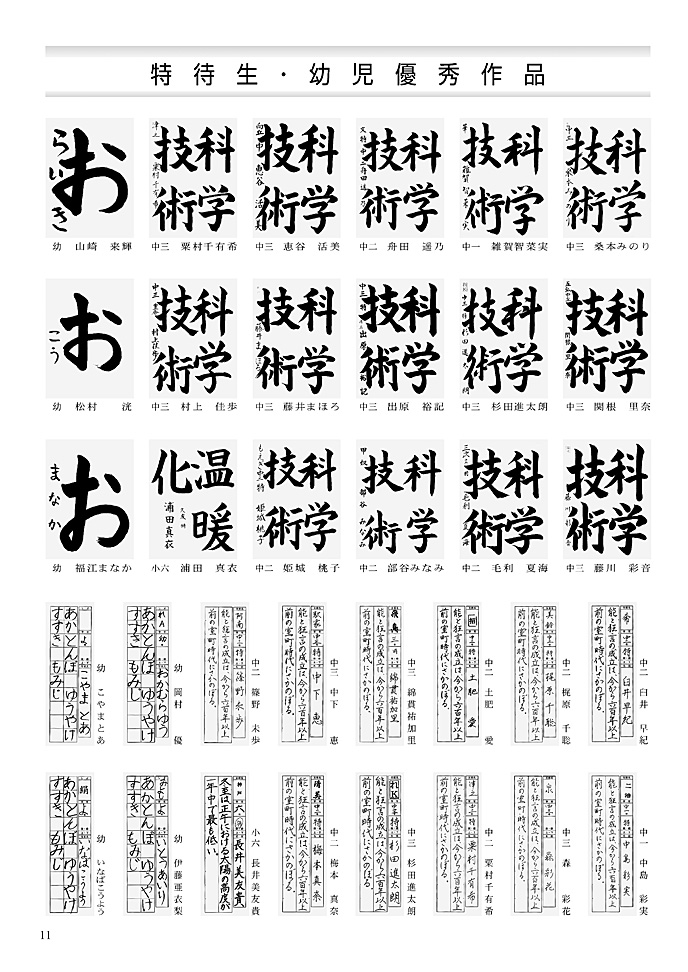 特待生・幼児優秀作品
科学技術
科学技術
科学技術
科学技術
科学技術
お
らいき
中三 桑本みのり
中一 雑賀智菜実
中二 舟田 遥乃
中三 恵谷 活美
中三 粟村千有希
幼 山崎 来輝
科学技術
科学技術
科学技術
科学技術
科学技術
お
こう
中三 関根 里奈
中三 杉田進太朗
中三 出原 裕記
中三 藤井まほろ
中三 村上 佳歩
幼 松村 洸
科学技術
科学技術
科学技術
科学技術
温暖化
浦田真衣
お
まなか
中三 藤川 彩音
中二 毛利 夏海
中二 部谷みなみ
中二 姫城 桃子
小六 浦田 真衣
幼 福江まなか
能と狂言の成立は今から六百年以上
前の室町時代にさかのぼる。
中二 臼井 早紀
能と狂言の成立は今から六百年以上
前の室町時代にさかのぼる。
中二 梶原 千聡
能と狂言の成立は今から六百年以上
前の室町時代にさかのぼる。
中二 土肥 愛
能と狂言の成立は今から六百年以上
前の室町時代にさかのぼる。
中三 綿貫祐加里
能と狂言の成立は今から六百年以上
前の室町時代にさかのぼる。
中三 中下 恵
能と狂言の成立は今から六百年以上
前の室町時代にさかのぼる。
中二 篠野 未歩
おかむらゆう
あかとんぼ ゆうやけ
すすき もみじ
幼 岡村 優
こやまとあ
あかとんぼ ゆうやけ
すすき もみじ
幼 こやまとあ
能と狂言の成立は今から六百年以上
前の室町時代にさかのぼる。
中一 中島 彩実
能と狂言の成立は今から六百年以上
前の室町時代にさかのぼる。
中三 森 彩花
能と狂言の成立は今から六百年以上
前の室町時代にさかのぼる。
中二 粟村千有希
能と狂言の成立は今から六百年以上
前の室町時代にさかのぼる。
中三 杉田進太朗
能と狂言の成立は今から六百年以上
前の室町時代にさかのぼる。
中二 梅本 真奈
長井美友貴
冬至は正午における太陽の高度が
一年中で最も低い。
小六 長井美友貴
いとうあいり
あかとんぼ ゆうやけ
すすき もみじ
幼 伊藤亜衣梨
いなばこうよう
あかとんぼ ゆうやけ
すすき もみじ
幼 いなばこうよう
11